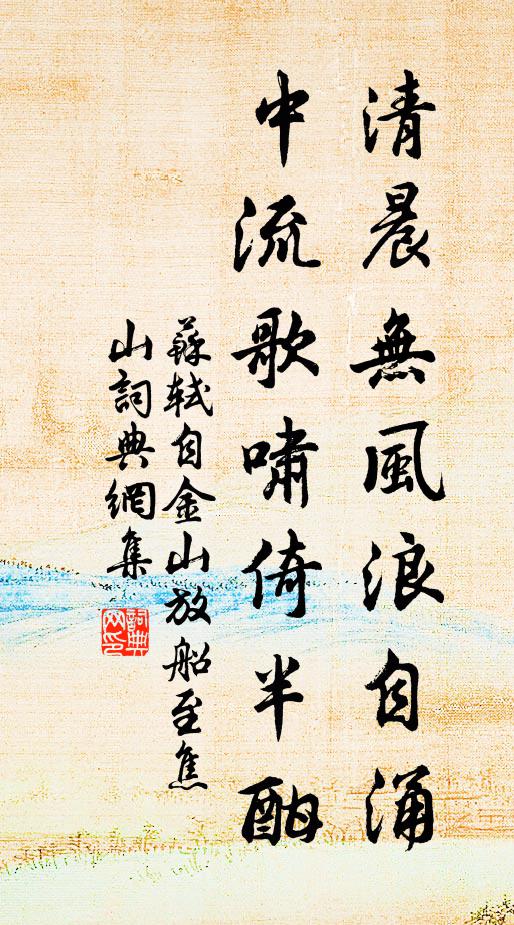 清晨無風浪自湧
中流歌嘯倚半酣
蘇軾自金山放船至焦
山詞典網集
詞典网印